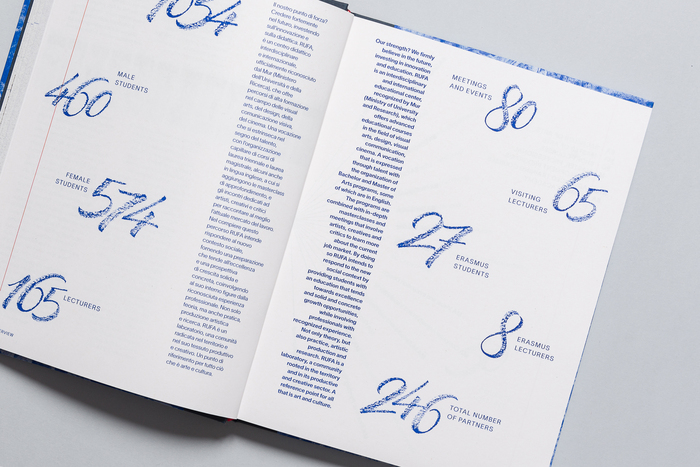 MALE
STUDENTS
460
FEMALE
STUDENTS
574
165
LECTURERS
Il nostro punto di forza?
Credere fortemente
nel futuro, investendo
sull'innovazione e
sulla didattica. RUFA,
è un centro didattico
interdisciplinare
e internazionale,
ufficialmente riconosciuto
dal Mur (Ministero
dell'Università e della
Ricerca), che offre
percorsi di alta formazione
nel campo delle visual
arts, del design, della
comunicazione visiva,
del cinema. Una vocazione
che si estrinseca nel
segno del talento,
con l'organizzazione
capillare di corsi di
laurea triennale e laurea
magistrale, alcuni anche
in lingua inglese, a cui si
aggiungono le masterclass
di approfondimento, e
gli incontri dedicati ad
artisti, creativi e critici
per raccontare al meglio
l'attuale mercato del lavoro.
Nel compiere questo
percorso RUFA intende
rispondere al nuovo
contesto sociale,
fornendo una preparazione
che tende all'eccellenza
e una prospettiva
di crescita solida e
concreta, coinvolgendo
al suo interno figure dalla
riconosciuta esperienza
professionale. Non solo
teoria, ma anche pratica,
produzione artistica
e ricerca. RUFA è un
laboratorio, una comunità
radicata nel territorio e
nel suo tessuto produttivo
e creativo. Un punto di
riferimento per tutto ciò
che è arte e cultura.
Our strength? We firmly
believe in the future,
investing in innovation
and education. RUFA
is an interdisciplinary
and international
educational center,
recognized by Mur
(Ministry of University
and Research), which
offers advanced
educational courses
in the field of visual
arts, design, visual
communication,
cinema. A vocation
that is expressed
through talent with
the organization of
Bachelor and Master of
Arts programs, some
of which are in English.
The programs are
combined with in-depth
masterclasses and
meetings that involve
artists, creatives and
critics to learn more
about the current
job market. By doing
so RUFA intends to
respond to the new
social context by
providing students with
an education that tends
towards excellence
and solid and concrete
growth opportunities,
while involving
professionals with
recognized experience.
Not only theory, but
also practice, artistic
production and
research. RUFA is a
laboratory, a community
rooted in the territory
and in its productive
and creative sector. A
reference point for all
that is art and culture.
MEETINGS
AND EVENTS
80
VISITING
LECTURERS
65
27
ERASMUS
STUDENTS
8
ERASMUS
LECTURERS
246
TOTAL NUMBER
OF PARTNERS